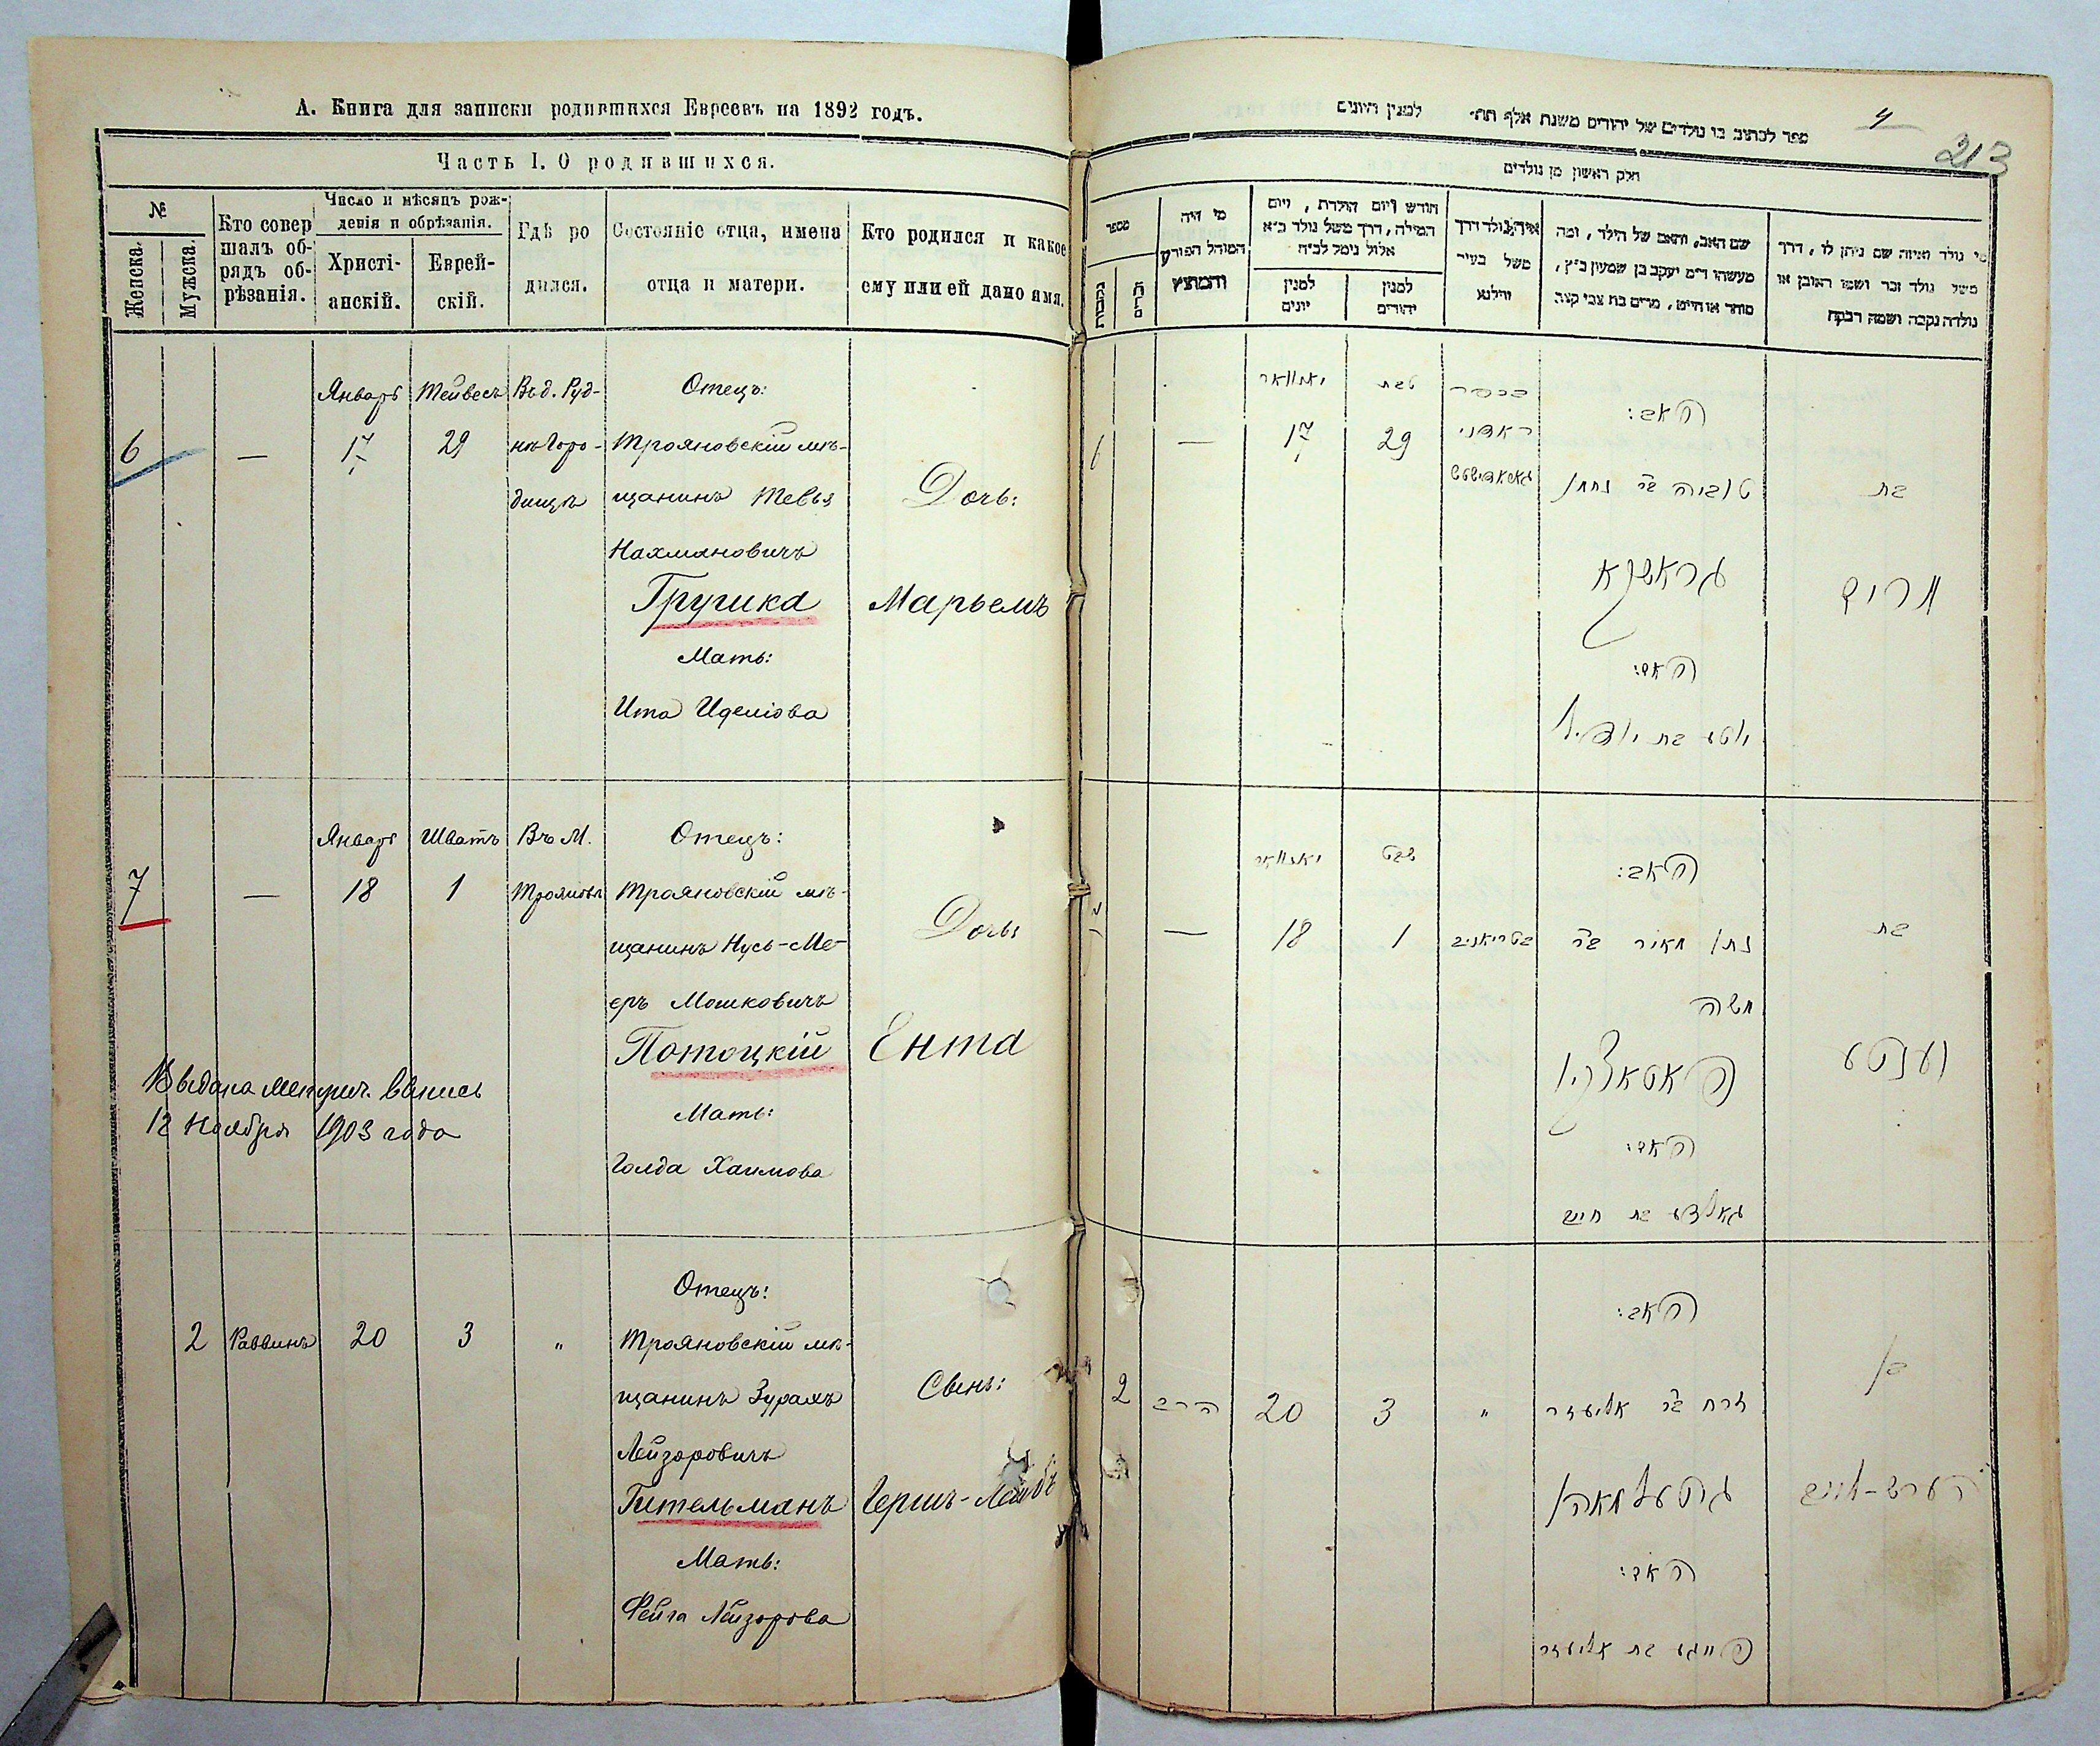 А. Книга для записки родившихся Евреевъ на 1892 годъ.
Часть I. О родившихся.
№
Женска
Мужска
Кто совер
шалъ об-
рядъ об-
рѣзанія.
Число и мѣсяцъ рож-
денія и обрѣзанія.
Христі-
анскій.
Еврей-
скій.
Гдѣ ро
дился.
Состояніе отца, имена
отца и матери.
Кто родился и какое
ему или ей дано имя.
Январь Тейвесъ Въ д. Руд- Отецъ:
6 — 17 29 нѣ Горо- Трояновскій мѣ-
дищѣ щанинъ Тевья Дочь:
Нахмановичъ
Грушка Марьемъ
Мать:
Ита
Январь Шватъ Въ М. Отецъ:
7 — 18 1 Трояновѣ Трояновскій мѣ-
щанинъ Нусь-Ме- Дочь:
еръ Мошковичъ
Потоцкій Ента
Выдана метрич. выпись
12 Ноября 1903 года
Мать:
Голда Хаимова
Отецъ:
2 Раввинъ 20 3 " Трояновскій мѣ-
щанинъ Зурахъ Сынъ:
Лейзоровичъ
Гительманъ Гершъ-Лейбъ
Мать:
Фейга Лейзорова
4
213
ספר לכתוב בו נולדים של יהודים משנת אלף תת׳ למנין היונים
חלק ראשון מן נולדים
מספר
נקבות
זכרים
מי היה
המוהל הפורע
והמוצץ
חודש ויום הולדת, ויום
המילה, דרך משל נולד כ״א
אלול נימל לכ״ח
למנין
יונים
למנין
יהודים
איה נולד דרך
משל בעיר
ווילנא
שם האב, והאם של הילד, ומה
מעשהו ד״מ יעקב בן שמעון כ״ץ,
סוחר או חייט, מרים בת צבי קצה
מי נולד ואיזה שם ניתן לו, דרך
משל נולד זכר ושמו ראובן או
נולדה נקבה ושמה רבקה
יאנואר טבת בכפר האב:
6 — 17 29 ראדני
טוביה ב״ר נחמן בת
גראשקא מרים
האם:
יטע בת יודיל
יאנואר שבט האב:
7 — 18 1 בטריאניב נתן מאיר ב״ר בת
משה
פאטאצקי יענטע
האם:
גאלדע בת חיים
האב:
2 הרב 20 3 " זרח ב״ר אליעזר בן
גיטעלמאן הערש-לייב
האם:
פייגע בת אליעזר